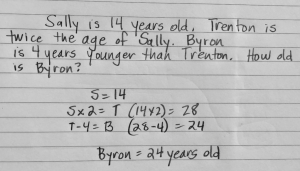 Sally is 14 years old, Trenton is
twice the age of Sally. Byron
is 4 years younger than Trenton. How old
is Byron?
S=14
S×2= T (14×2)= 28
T-4= B (28-4) = 24
Byron = 24 years old